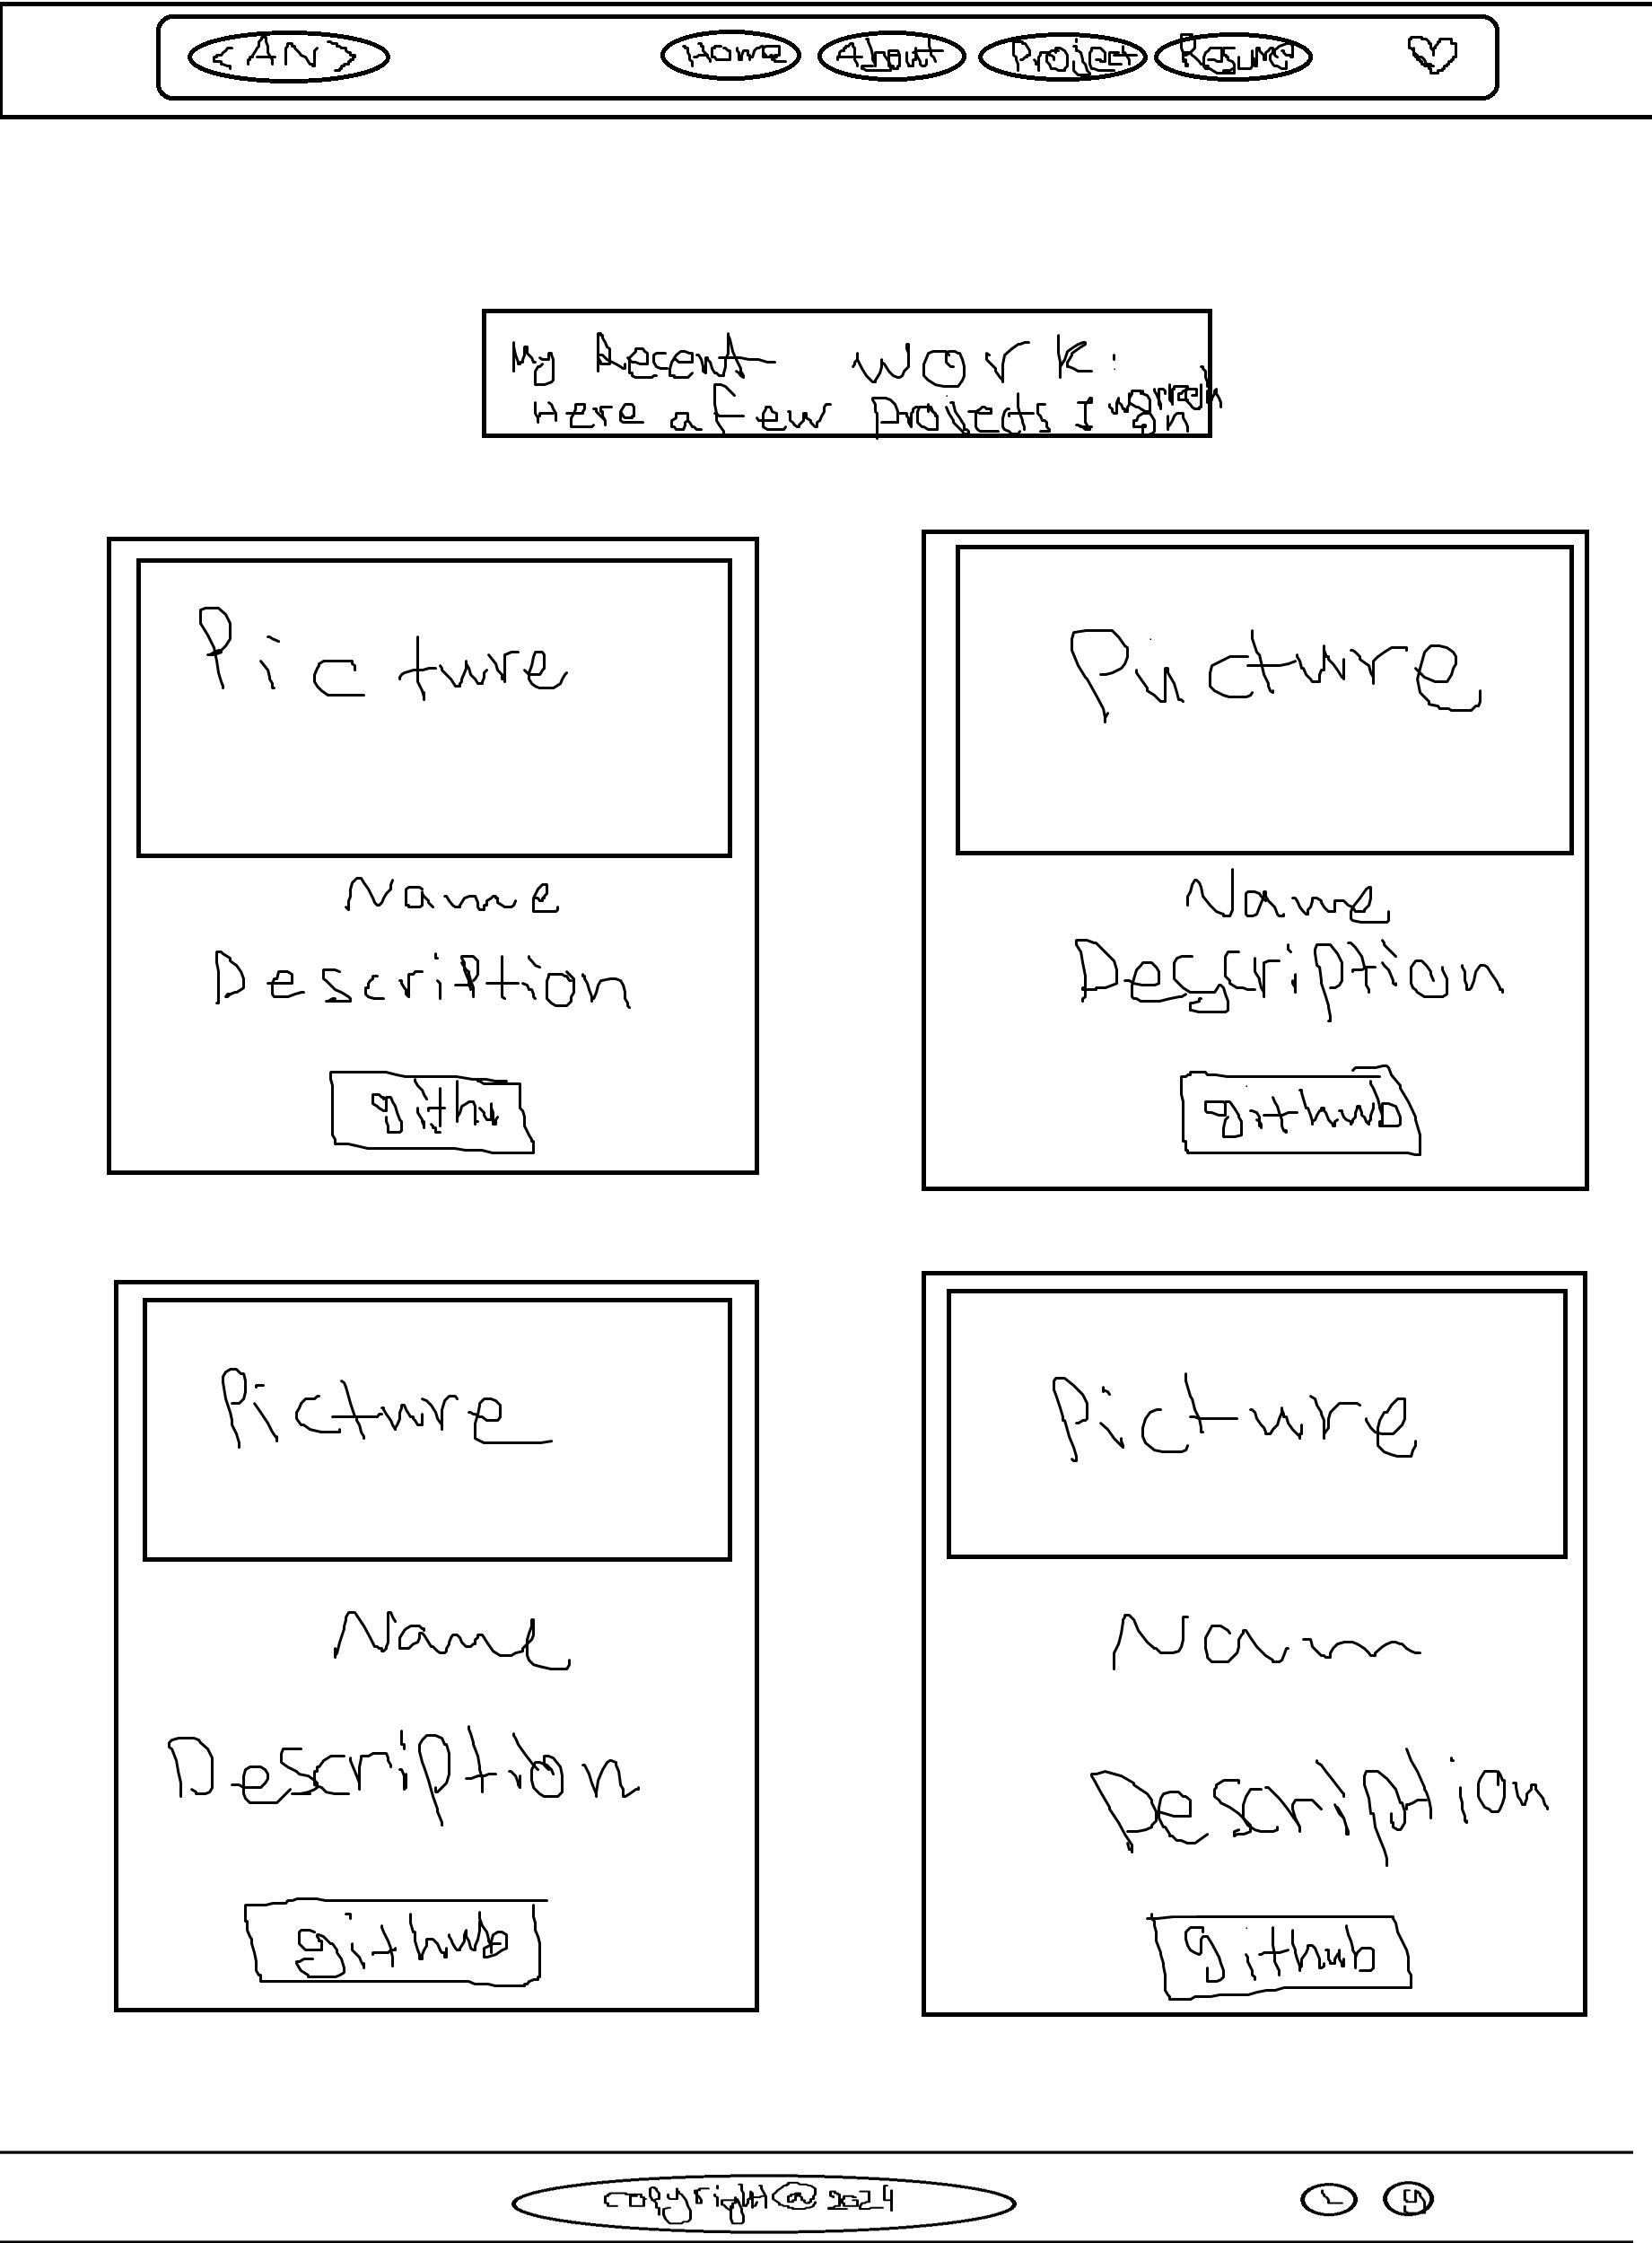 <AN> Home About Project Resume
My Recent work:
Here a few projects I work on
Picture
Picture
Name
Description
githu
Name
Description
github
Picture
Picture
Name
Description
github
Nam
Description
github
copyright@2024